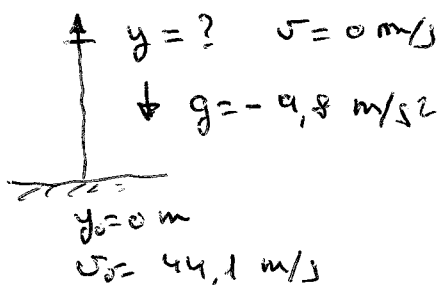 y = ? v = 0 m/s
g = - 9,8 m/s2
y₀ = 0 m
v₀ = 44,1 m/s